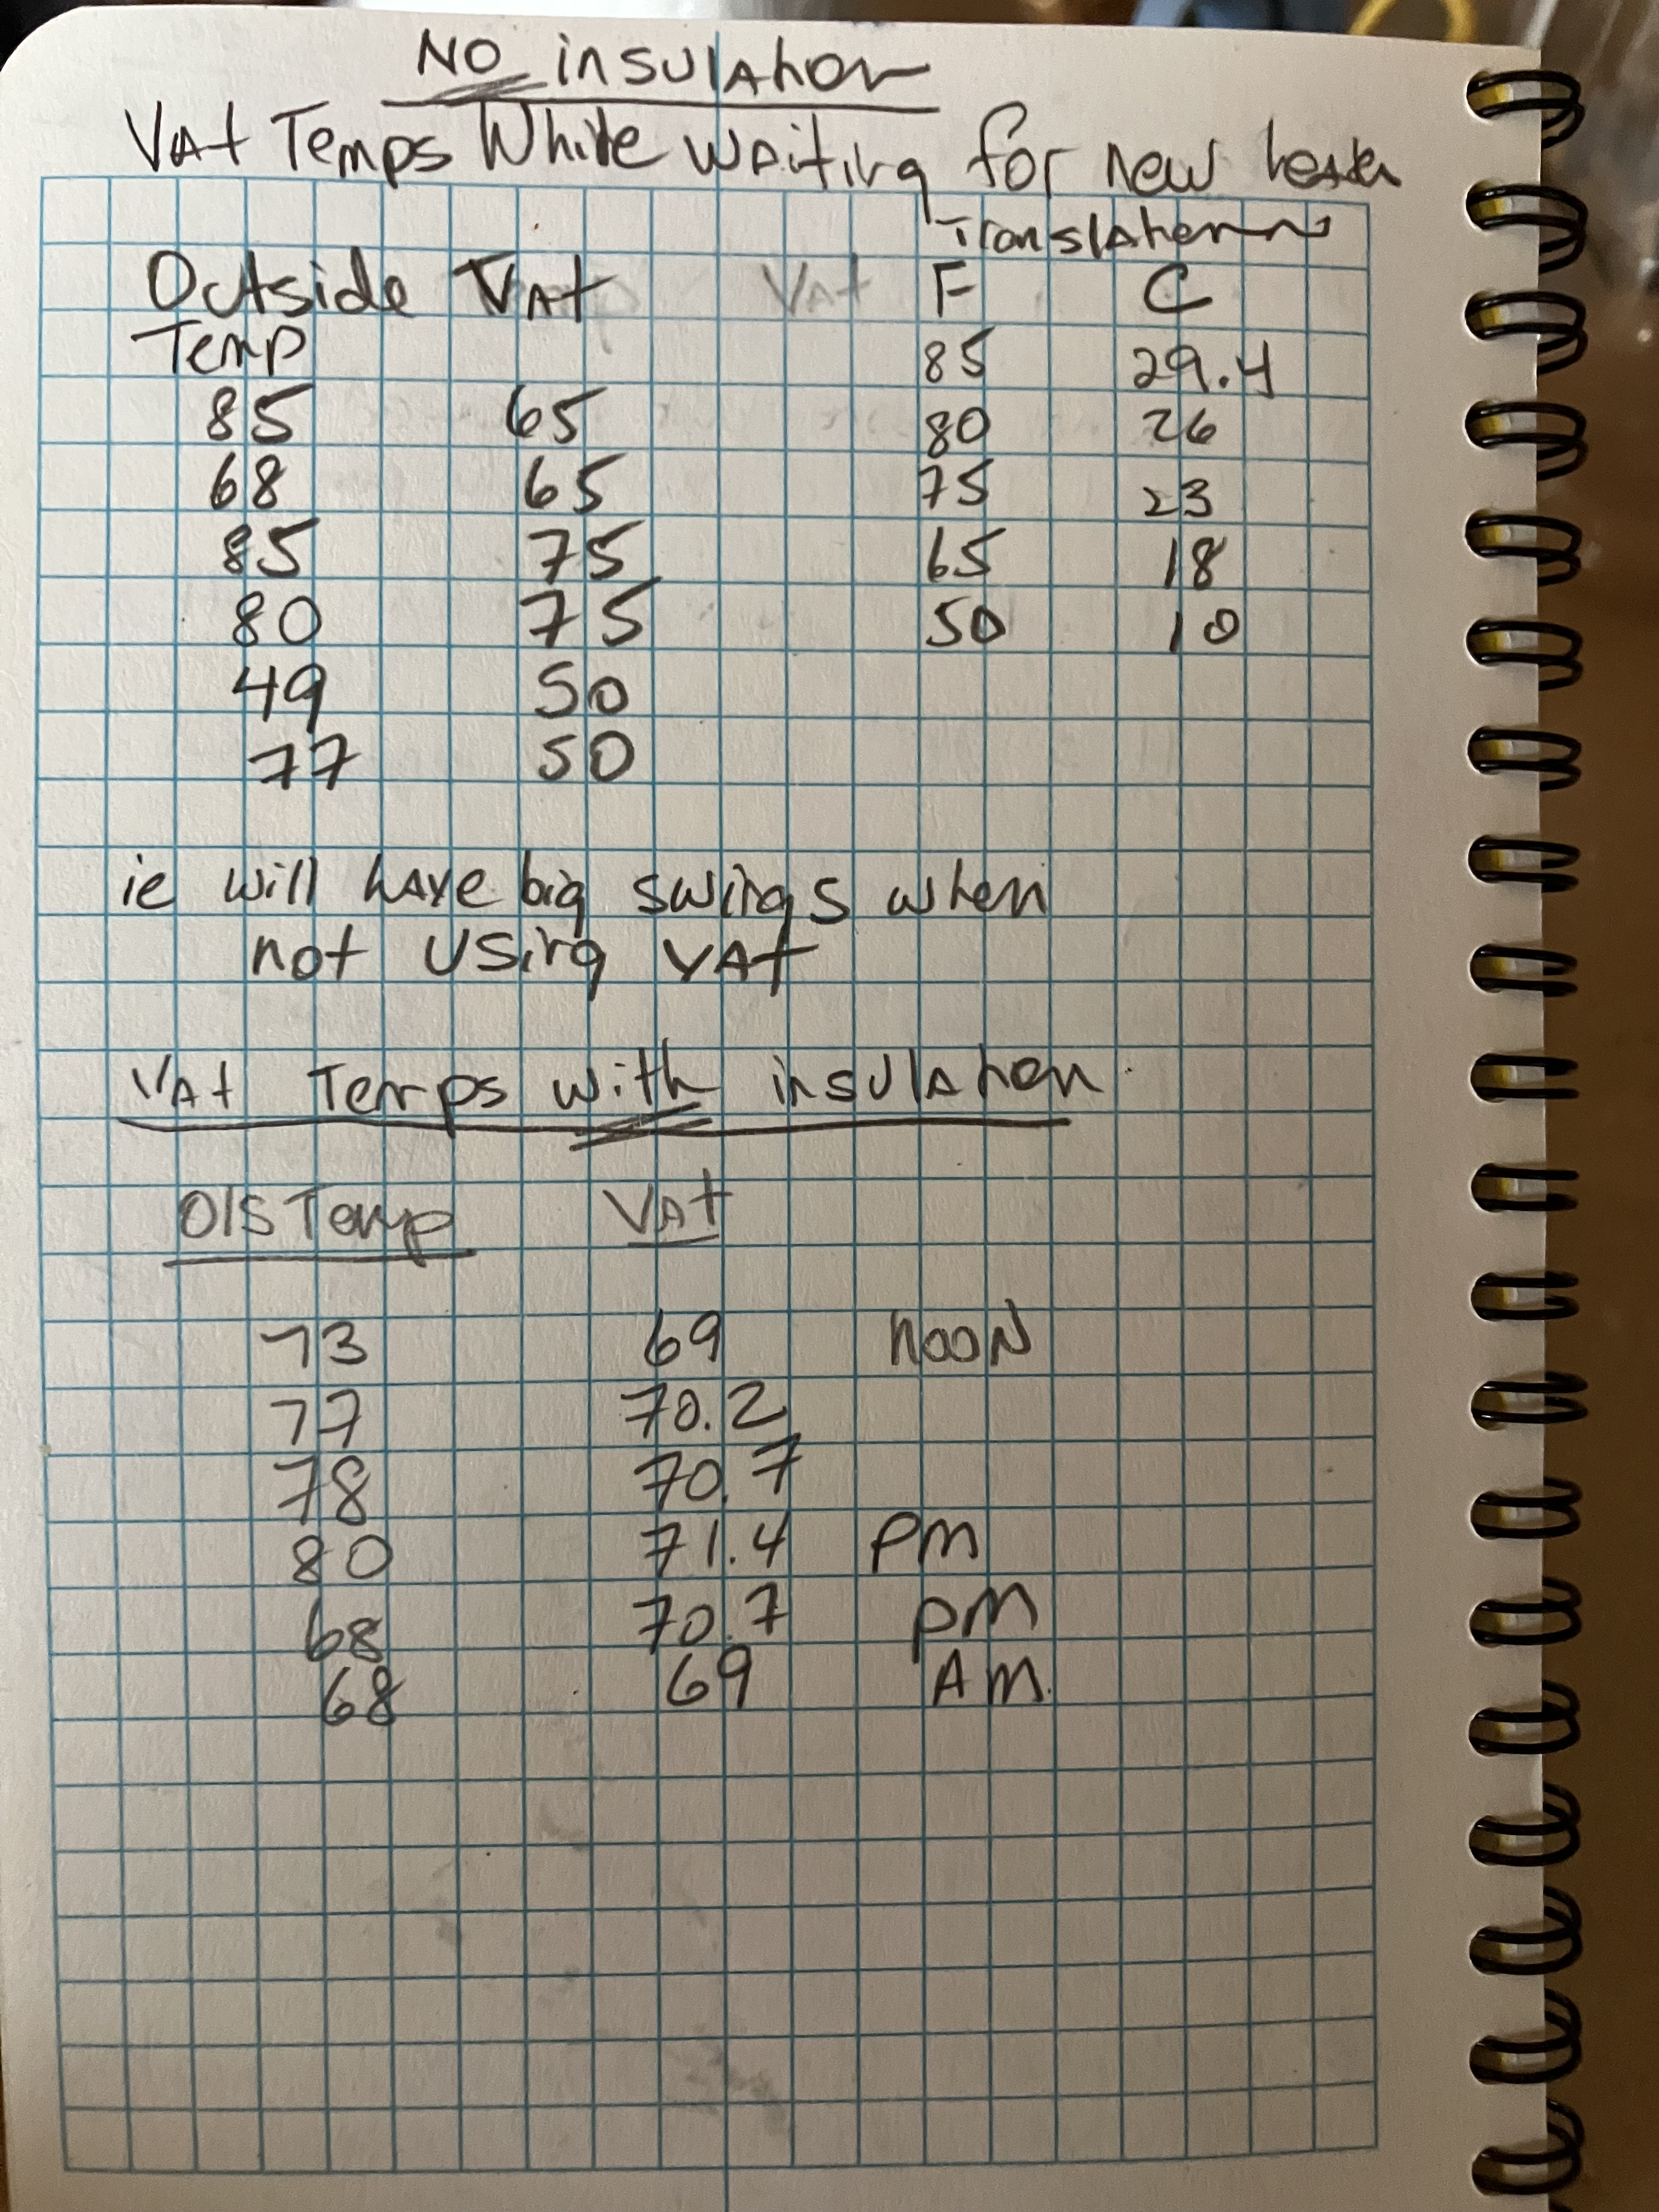 NO insulation
Vat Temps While waiting for new heater
Translation
Outside Vat Vat F C
Temp 85 29.4
85 65 80 26
68 65 75 23
85 75 65 18
80 75 50 10
49 50
77 50
ie will have big swings when
not using vat
Vat Temps with insulation
O/S Temp Vat
73 69 noon
77 70.2
78 70.7
80 71.4 pm
68 70.7 pm
68 69 AM.